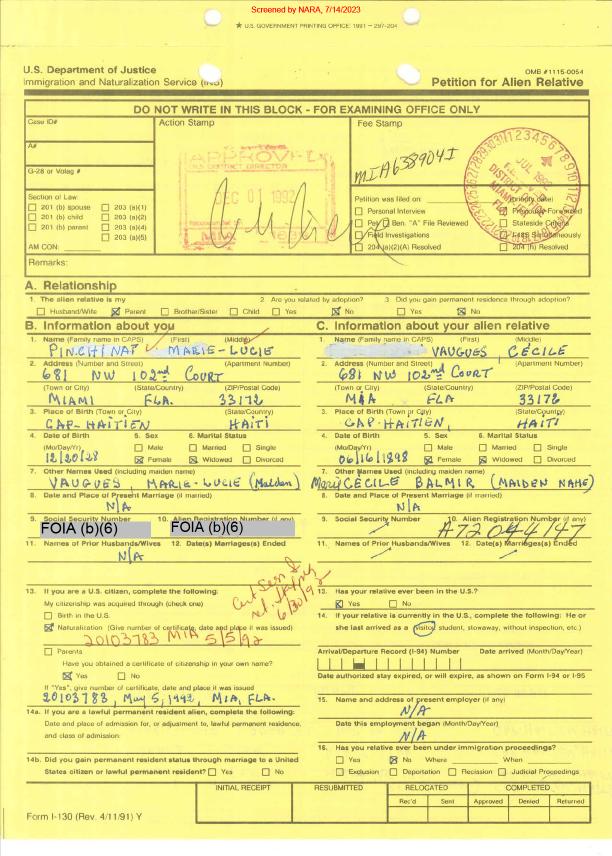 Screened by NARA, 7/14/2023
★ U.S. GOVERNMENT PRINTING OFFICE: 1991 — 297-204
U.S. Department of Justice
Immigration and Naturalization Service (INS)
OMB #1115-0054
Petition for Alien Relative
DO NOT WRITE IN THIS BLOCK - FOR EXAMINING OFFICE ONLY
Case ID#
Action Stamp
Fee Stamp
A#
G-28 or Volag #
APPROVED
DEC 01 1992
MIA638904I
JUL 1992
DISTRICT
MIAMI
Section of Law:
201 (b) spouse 203 (a)(1)
201 (b) child 203 (a)(2)
201 (b) parent 203 (a)(4)
203 (a)(5)
AM CON:
Petition was filed on: (priority date)
Personal Interview Previously Forwarded
Pet/ Ben. "A" File Reviewed Stateside Criteria
Field Investigations I-485 Simultaneously
204 (a)(2)(A) Resolved 204 (h) Resolved
Remarks:
A. Relationship
1. The alien relative is my
Husband/Wife Parent Brother/Sister Child
2. Are you related by adoption?
Yes No
3. Did you gain permanent residence through adoption?
Yes No
B. Information about you
1. Name (Family name in CAPS) (First) (Middle)
PINCHINAT MARIE-LUCIE
2. Address (Number and Street) (Apartment Number)
681 NW 102nd COURT
(Town or City) (State/Country) (ZIP/Postal Code)
MIAMI FLA. 33172
3. Place of Birth (Town or City) (State/Country)
CAP-HAITIEN HAITI
4. Date of Birth 5. Sex 6. Marital Status
(Mo/Day/Yr) Male Married Single
12/20/28 Female Widowed Divorced
7. Other Names Used (including maiden name)
VAUGUES, MARIE-LUCIE (Maiden)
8. Date and Place of Present Marriage (if married)
N/A
9. Social Security Number 10. Alien Registration Number (if any)
FOIA (b)(6) FOIA (b)(6)
11. Names of Prior Husbands/Wives 12. Date(s) Marriages(s) Ended
N/A
13. If you are a U.S. citizen, complete the following:
My citizenship was acquired through (check one)
Birth in the U.S.
Naturalization (Give number of certificate, date and place it was issued)
20103783 MIA 5/5/92
Cert Seen &
6/30/92
Parents
Have you obtained a certificate of citizenship in your own name?
Yes No
If "Yes", give number of certificate, date and place it was issued
20103783, May 5, 1992, MIA, FLA.
14a. If you are a lawful permanent resident alien, complete the following:
Date and place of admission for, or adjustment to, lawful permanent residence,
and class of admission:
14b. Did you gain permanent resident status through marriage to a United
States citizen or lawful permanent resident? Yes No
C. Information about your alien relative
1. Name (Family name in CAPS) (First) (Middle)
VAUGUES, CÉCILE
2. Address (Number and Street) (Apartment Number)
681 NW 102nd COURT
(Town or City) (State/Country) (ZIP/Postal Code)
MIA FLA 33172
3. Place of Birth (Town or City) (State/Country)
CAP-HAITIEN, HAITI
4. Date of Birth 5. Sex 6. Marital Status
(Mo/Day/Yr) Male Married Single
06/16/1898 Female Widowed Divorced
7. Other Names Used (including maiden name)
Marie CECILE BALMIR (MAIDEN NAME)
8. Date and Place of Present Marriage (if married)
N/A
9. Social Security Number 10. Alien Registration Number (if any)
A72044147
11. Names of Prior Husbands/Wives 12. Date(s) Marriages(s) Ended
13. Has your relative ever been in the U.S.?
Yes No
14. If your relative is currently in the U.S., complete the following: He or
she last arrived as a (visitor, student, stowaway, without inspection, etc.)
Arrival/Departure Record (I-94) Number Date arrived (Month/Day/Year)
Date authorized stay expired, or will expire, as shown on Form I-94 or I-95
15. Name and address of present employer (if any)
N/A
Date this employment began (Month/Day/Year)
N/A
16. Has your relative ever been under immigration proceedings?
Yes No Where When
Exclusion Deportation Recission Judicial Proceedings
INITIAL RECEIPT RESUBMITTED RELOCATED COMPLETED
Rec'd Sent Approved Denied Returned
Form I-130 (Rev. 4/11/91) Y